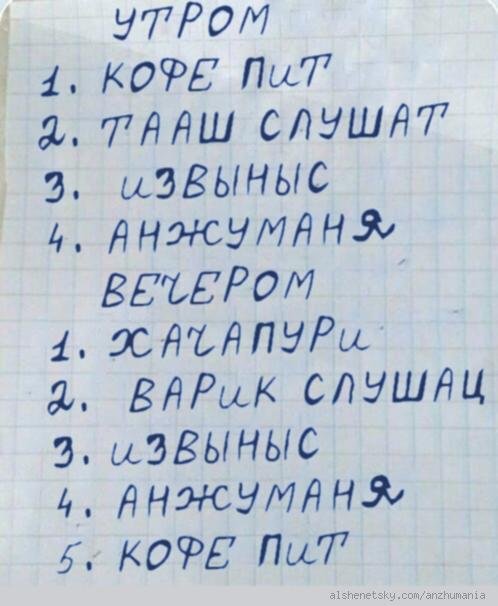 УТРОМ
1. КОФЕ ПИТ
2. ТААШ СЛУШАТ
3. ИЗВЫНЫС
4. АНЖУМАНЯ
ВЕЧЕРОМ
1. ХАЧАПУРИ
2. ВАРИК СЛУШАЦ
3. ИЗВЫНЫС
4. АНЖУМАНЯ
5. КОФЕ ПИТ
alshenetsky.com/anzhumania